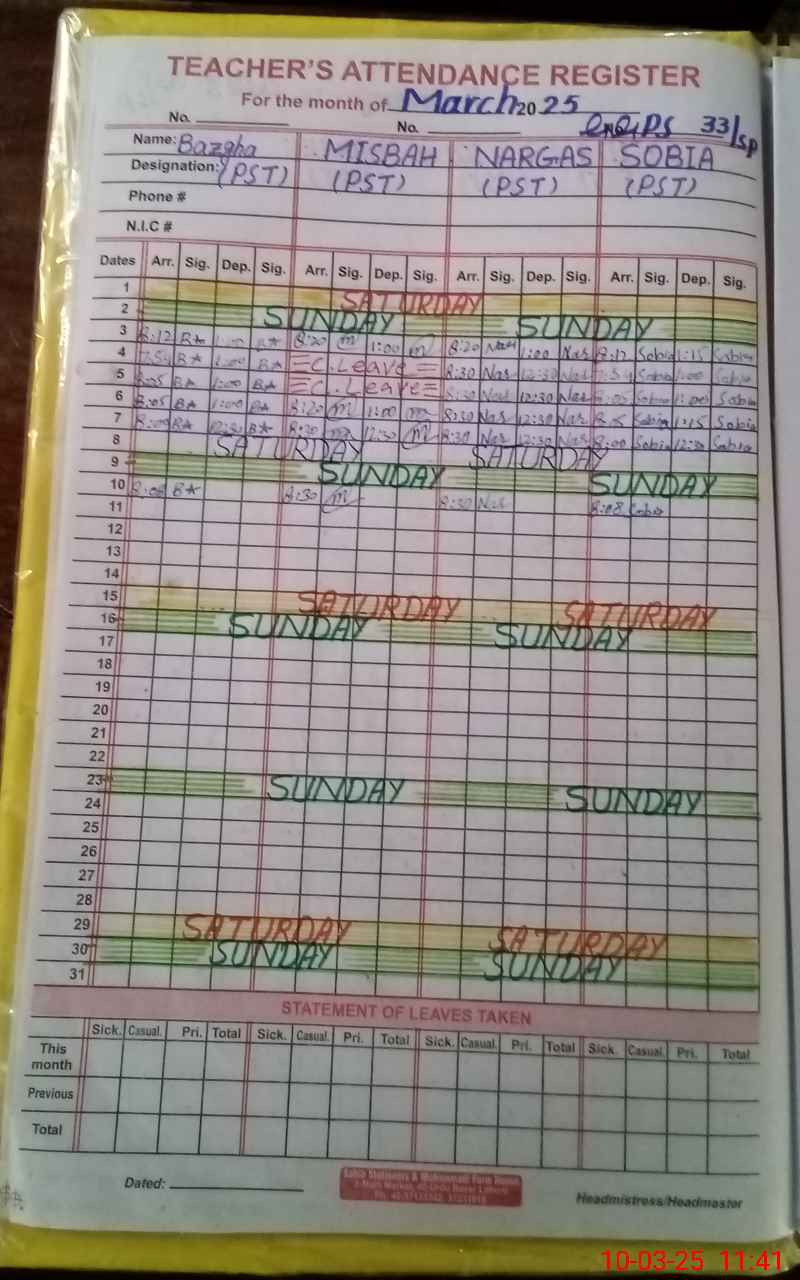 TEACHER'S ATTENDANCE REGISTER
For the month of March 2025
No. No. PS 33/SP
Name: Bazgha MISBAH NARGAS SOBIA
Designation: (PST) (PST) (PST) (PST)
Phone #
N.I.C #
Dates Arr. Sig. Dep. Sig. Arr. Sig. Dep. Sig. Arr. Sig. Dep. Sig. Arr. Sig. Dep. Sig.
1 SATURDAY
2 SUNDAY SUNDAY
3 8:12 B* 8:20 m 1:00 m 8:20 Nas 1:00 Nas 8:12 Sobia 1:15 Sobia
4 7:54 B* 1:00 B* C.Leave 8:30 Nas 12:30 Nas Sobia 1:00 Sobia
5 8:05 B* 1:00 B* C.Leave 8:30 Nas 12:30 Nas 8:05 Sobia 1:00 Sobia
6 8:05 B* 1:00 B* 8:20 m 1:00 m 8:30 Nas 12:30 Nas 8:05 Sobia 1:15 Sobia
7 8:00 B* 12:30 B* 8:30 m 12:30 m 8:30 Nas 12:30 Nas 8:00 Sobia 12:30 Sobia
8 SATURDAY SATURDAY
9 SUNDAY SUNDAY
10 8:08 B* 8:30 m 8:30 Nas 8:08 Sobia
11
12
13
14
15 SATURDAY SATURDAY
16 SUNDAY SUNDAY
17
18
19
20
21
22
23 SUNDAY SUNDAY
24
25
26
27
28
29 SATURDAY SATURDAY
30 SUNDAY SUNDAY
31
STATEMENT OF LEAVES TAKEN
Sick. Casual. Pri. Total Sick. Casual. Pri. Total Sick. Casual. Pri. Total Sick. Casual. Pri. Total
This month
Previous
Total
Dated:
Headmistress/Headmaster
10-03-25 11:41